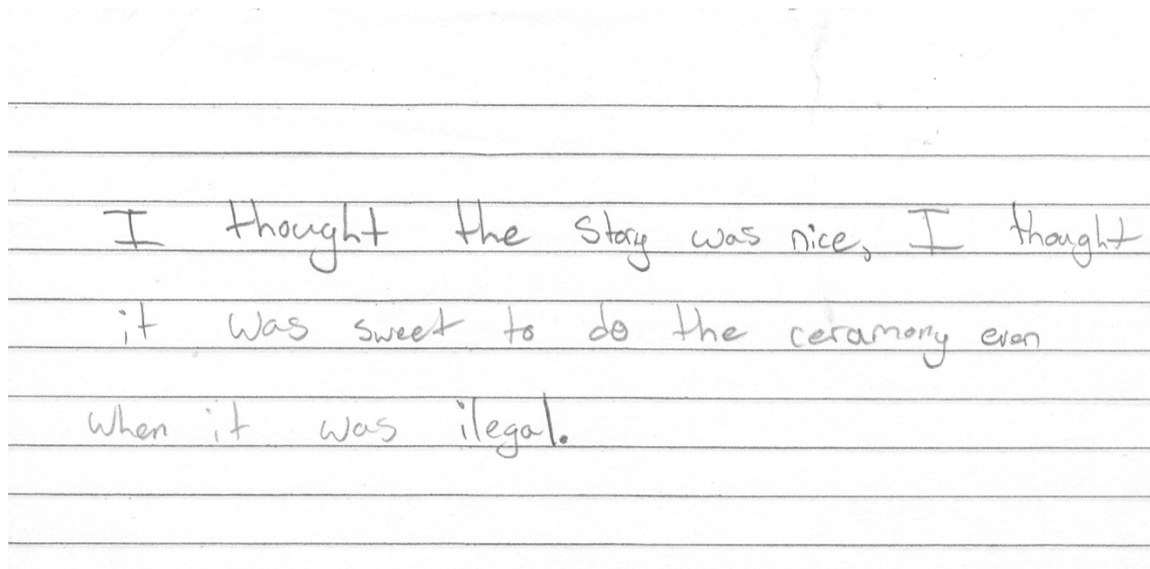 I thought the story was nice, I thought
it was sweet to do the ceramony even
when it was ilegal.